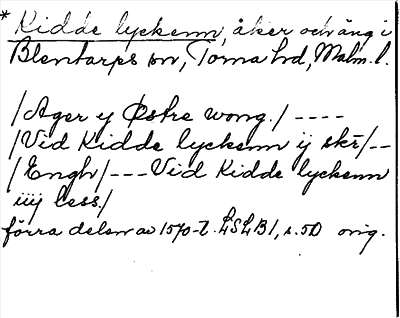 * Kidde lyckenn, åker och äng i
Blentarps sn, Torna hd, Malm. l.
/Ager y Østre wong./ ----
/Vid Kidde lyckenn ij skr/--
/Engh/---Vid Kidde lyckenn
iiij less./
förra delen av 1570-t. LSLB1, s. 50 orig.